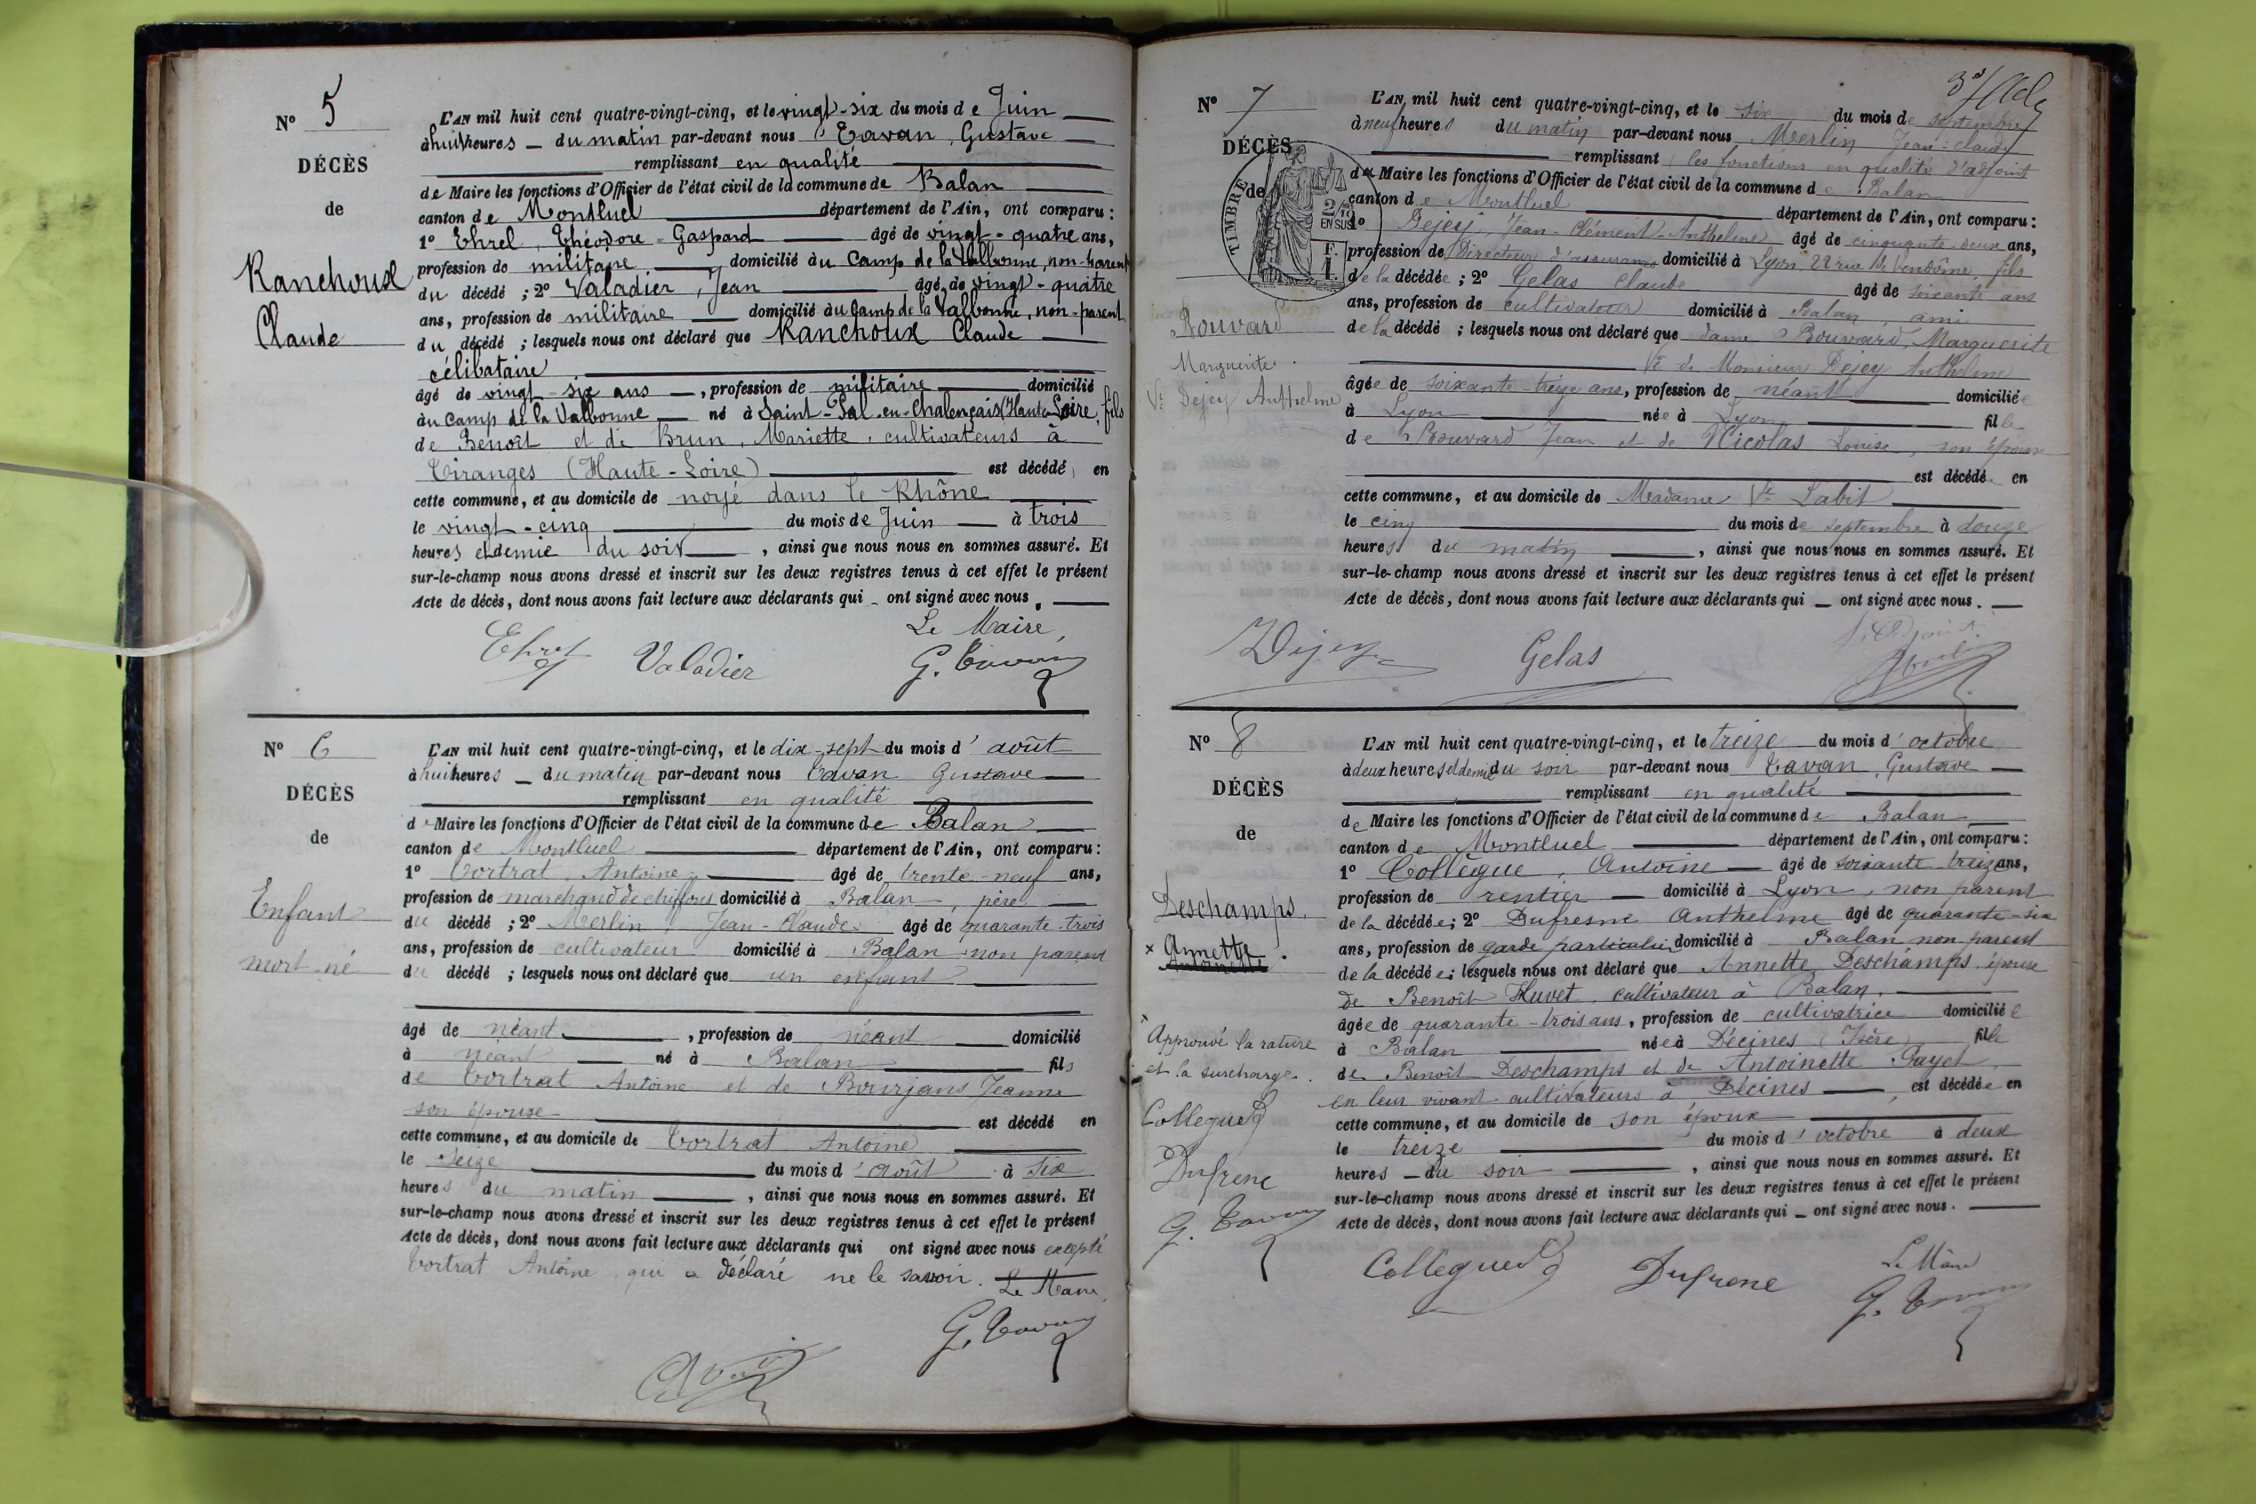 N° 5
DÉCÈS
de
Ranchoux
Claude
L'AN mil huit cent quatre-vingt-cinq, et le vingt-six du mois de Juin
à huit heures du matin par-devant nous Tavan, Gustave
remplissant en qualité
de Maire les fonctions d'Officier de l'état civil de la commune de Balan
canton de Montluel département de l'Ain, ont comparu :
1° Ehret, Théodore-Gaspard âgé de vingt-quatre ans,
profession de militaire domicilié au Camp de la Valbonne, non-parent
du décédé ; 2° Valadier, Jean âgé de vingt-quatre
ans, profession de militaire domicilié au Camp de la Valbonne, non-parent
du décédé ; lesquels nous ont déclaré que Ranchoux Claude
célibataire
âgé de vingt-six ans, profession de militaire domicilié
au Camp de la Valbonne né à Saint-Pal-en-Chalençais (Haute-Loire), fils
de Benoît et de Brun, Mariette, cultivateurs à
Tiranges (Haute-Loire) est décédé, en
cette commune, et au domicile de noyé dans le Rhône
le vingt-cinq du mois de Juin à trois
heures et demie du soir, ainsi que nous nous en sommes assuré. Et
sur-le-champ nous avons dressé et inscrit sur les deux registres tenus à cet effet le présent
Acte de décès, dont nous avons fait lecture aux déclarants qui ont signé avec nous.
Le Maire,
Ehret Valadier G. Tavan
N° 6
DÉCÈS
de
Enfant
mort-né
L'AN mil huit cent quatre-vingt-cinq, et le dix-sept du mois d'août
à huit heures du matin par-devant nous Tavan Gustave
remplissant en qualité
de Maire les fonctions d'Officier de l'état civil de la commune de Balan
canton de Montluel département de l'Ain, ont comparu :
1° Tortrat, Antoine âgé de trente-neuf ans,
profession de marchand de chiffons domicilié à Balan, père
du décédé ; 2° Merlin, Jean-Claude âgé de quarante-trois
ans, profession de cultivateur domicilié à Balan non parent
du décédé ; lesquels nous ont déclaré que un enfant
âgé de néant, profession de néant domicilié
à néant né à Balan fils
de Tortrat Antoine et de Bourjans Jeanne
son épouse est décédé en
cette commune, et au domicile de Tortrat Antoine
le seize du mois d'août à six
heures du matin, ainsi que nous nous en sommes assuré. Et
sur-le-champ nous avons dressé et inscrit sur les deux registres tenus à cet effet le présent
Acte de décès, dont nous avons fait lecture aux déclarants qui ont signé avec nous excepté
Tortrat Antoine qui a déclaré ne le savoir. Le Maire,
G. Tavan
N° 7
DÉCÈS
de
TIMBRE
2/10 EN SUS
F. 1.
Bouvard
Marguerite
Ve Dejey Anthelme
L'AN mil huit cent quatre-vingt-cinq, et le six du mois de septembre
à neuf heures du matin par-devant nous Merlin Jean-Claude
remplissant les fonctions en qualité d'adjoint
du Maire les fonctions d'Officier de l'état civil de la commune de Balan
canton de Montluel département de l'Ain, ont comparu :
1° Dejey, Jean-Clément-Anthelme âgé de cinquante-deux ans,
profession de Directeur d'assurances domicilié à Lyon, 22 rue de Vendôme, fils
de la décédée ; 2° Gelas Claude âgé de soixante ans
ans, profession de cultivateur domicilié à Balan, ami
de la décédé ; lesquels nous ont déclaré que dame Bouvard, Marguerite
Ve de Monsieur Dejey Anthelme
âgée de soixante-treize ans, profession de néant domiciliée
à Lyon née à Lyon fille
de Bouvard Jean et de Nicolas Louise, son épouse
est décédée en
cette commune, et au domicile de Madame Ve Labit
le cinq du mois de septembre à douze
heures du matin, ainsi que nous nous en sommes assuré. Et
sur-le-champ nous avons dressé et inscrit sur les deux registres tenus à cet effet le présent
Acte de décès, dont nous avons fait lecture aux déclarants qui ont signé avec nous.
L'Adjoint
Dejey Gelas Merlin
N° 8
DÉCÈS
de
Deschamps,
× Annette
× Approuvé la rature
et la surcharge.
Collegue
Dufrene
G. Tavan
L'AN mil huit cent quatre-vingt-cinq, et le treize du mois d'octobre
à deux heures et demie du soir par-devant nous Tavan, Gustave
remplissant en qualité
de Maire les fonctions d'Officier de l'état civil de la commune de Balan
canton de Montluel département de l'Ain, ont comparu :
1° Collègue, Antoine âgé de soixante-treize ans,
profession de rentier domicilié à Lyon, non parent
de la décédée ; 2° Dufresne Anthelme âgé de quarante-six
ans, profession de garde particulier domicilié à Balan non parent
de la décédée ; lesquels nous ont déclaré que Annette Deschamps, épouse
de Benoît Huvet, cultivateur à Balan,
âgée de quarante-trois ans, profession de cultivatrice domiciliée
à Balan née à Décines (Isère) fille
de Benoît Deschamps et de Antoinette Payet,
en leur vivant cultivateurs à Décines, est décédée en
cette commune, et au domicile de son époux
le treize du mois d'octobre à deux
heures du soir, ainsi que nous nous en sommes assuré. Et
sur-le-champ nous avons dressé et inscrit sur les deux registres tenus à cet effet le présent
Acte de décès, dont nous avons fait lecture aux déclarants qui ont signé avec nous.
Le Maire
Collegue Dufrene G. Tavan